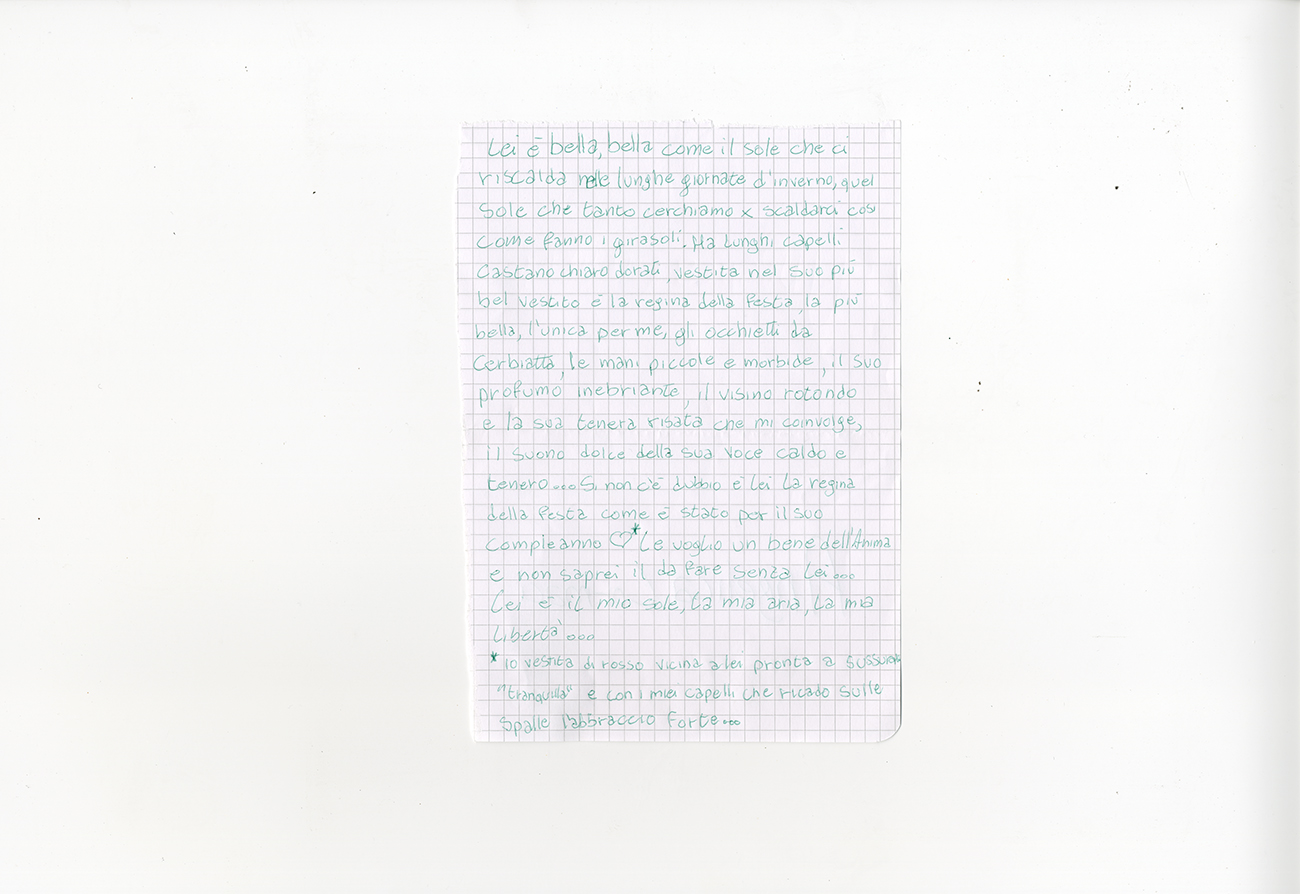 Lei è bella, bella come il sole che ci
riscalda nelle lunghe giornate d'inverno, quel
sole che tanto cerchiamo x scaldarci così
come fanno i girasoli. Ha lunghi capelli
castano chiaro dorati, vestita nel suo più
bel vestito è la regina della festa, la più
bella, l'unica per me, gli occhietti da
cerbiatta, le mani piccole e morbide, il suo
profumo inebriante, il visino rotondo
e la sua tenera risata che mi coinvolge,
il suono dolce della sua voce caldo e
tenero... Si non c'è dubbio è lei la regina
della festa come è stato per il suo
compleanno ♡* Le voglio un bene dell'Anima
e non saprei il da fare senza Lei...
Lei è il mio sole, la mia aria, la mia
libertà...
* io vestita di rosso vicina a lei pronta a
"tranquilla" e con i miei capelli che ricado sulle
spalle l'abbraccio forte...